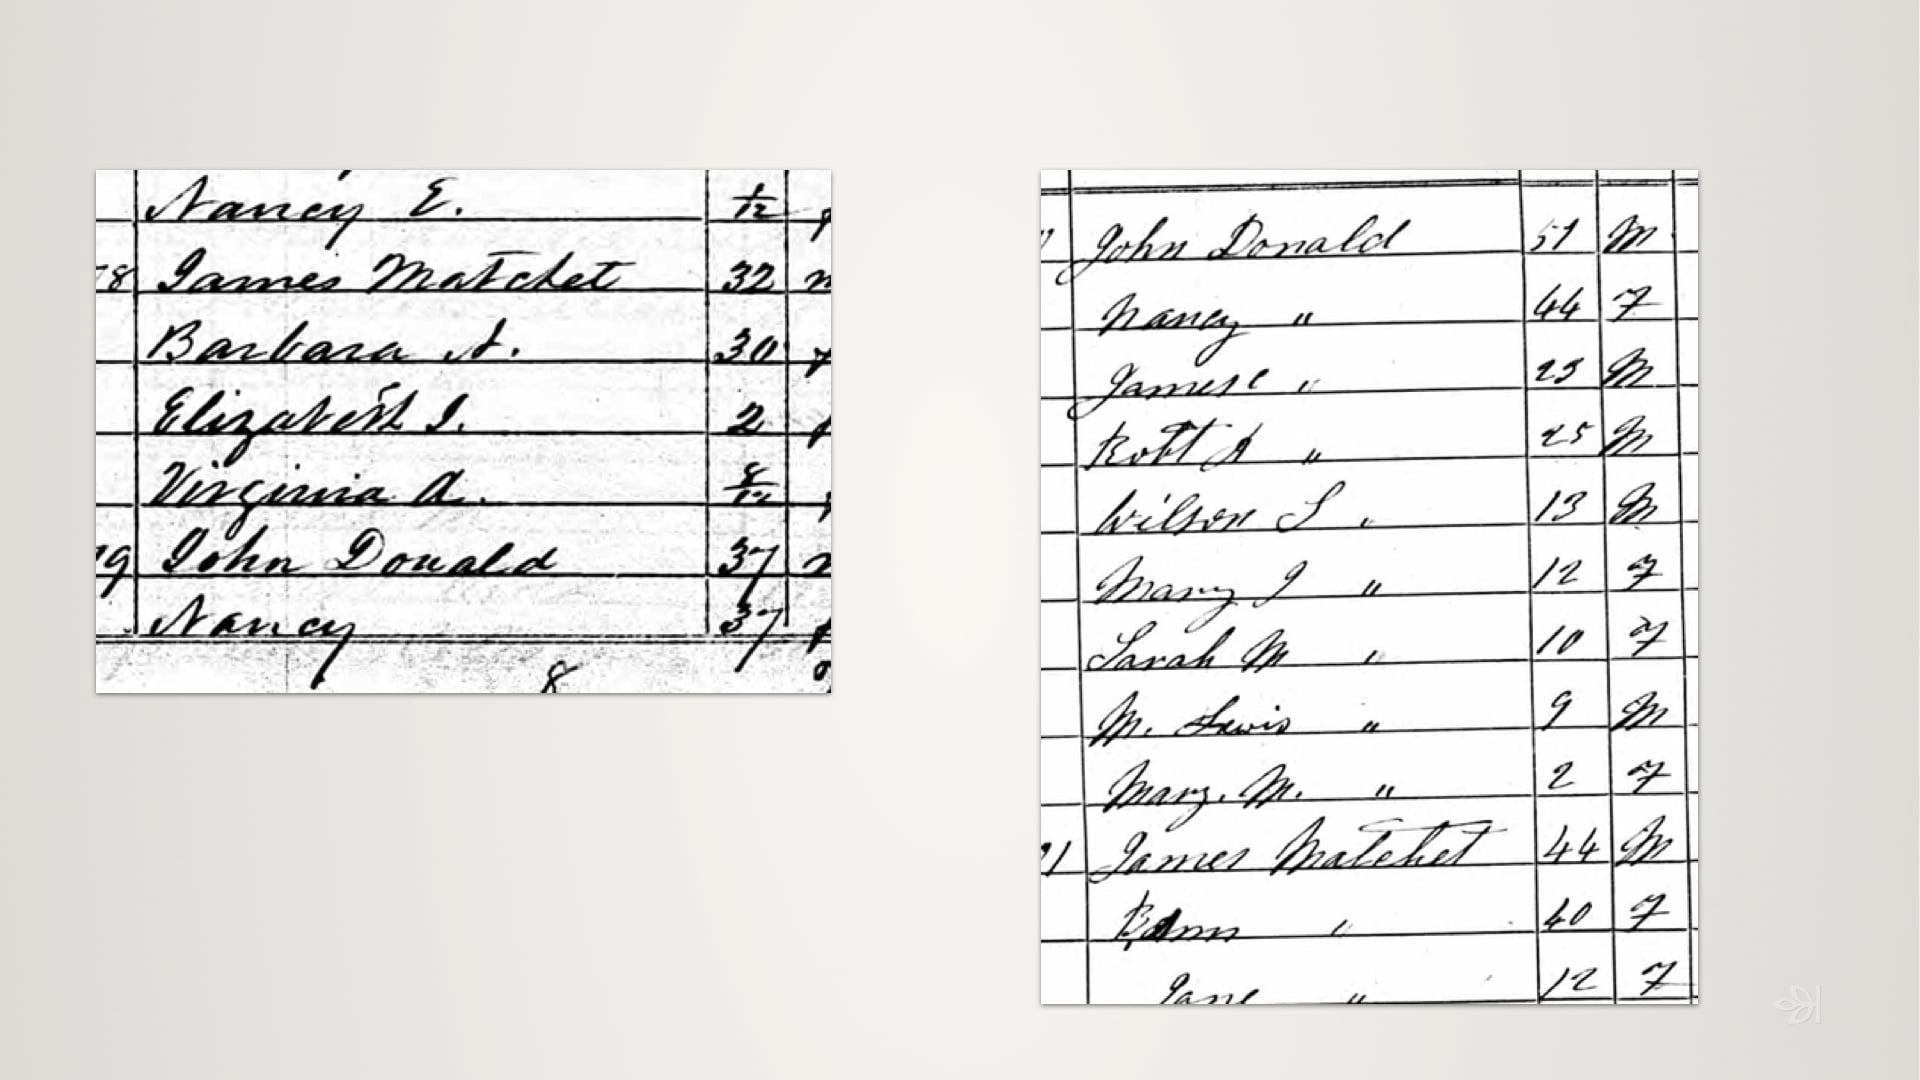 Nancy E. 1/12
78 James Matchet 32 m
Barbara A. 30 f
Elizabeth J. 2 f
Virginia A. 8/12 f
79 John Donald 37 m
Nancy 37 f
8
John Donald 51 M
Nancy " 44 F
James " 23 M
Robt A " 25 M
Wilson S " 13 M
Mary J " 12 F
Sarah M " 10 F
M. Lewis " 9 M
Mary. M. " 2 F
James Matchet 44 M
" 40 F
Jane " 12 F